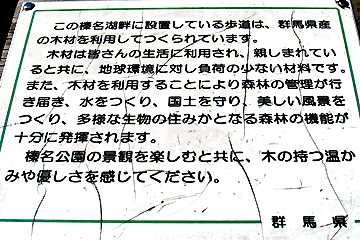 この榛名湖畔に設置している歩道は、群馬県産
の木材を利用してつくられています。
木材は皆さんの生活に利用され、親しまれてい
ると共に、地球環境に対し負荷の少ない材料です。
また、木材を利用することにより森林の管理が行
き届き、水をつくり、国土を守り、美しい風景を
つくり、多様な生物の住みかとなる森林の機能が
十分に発揮されます。
榛名公園の景観を楽しむと共に、木の持つ温か
みや優しさを感じてください。
群馬県